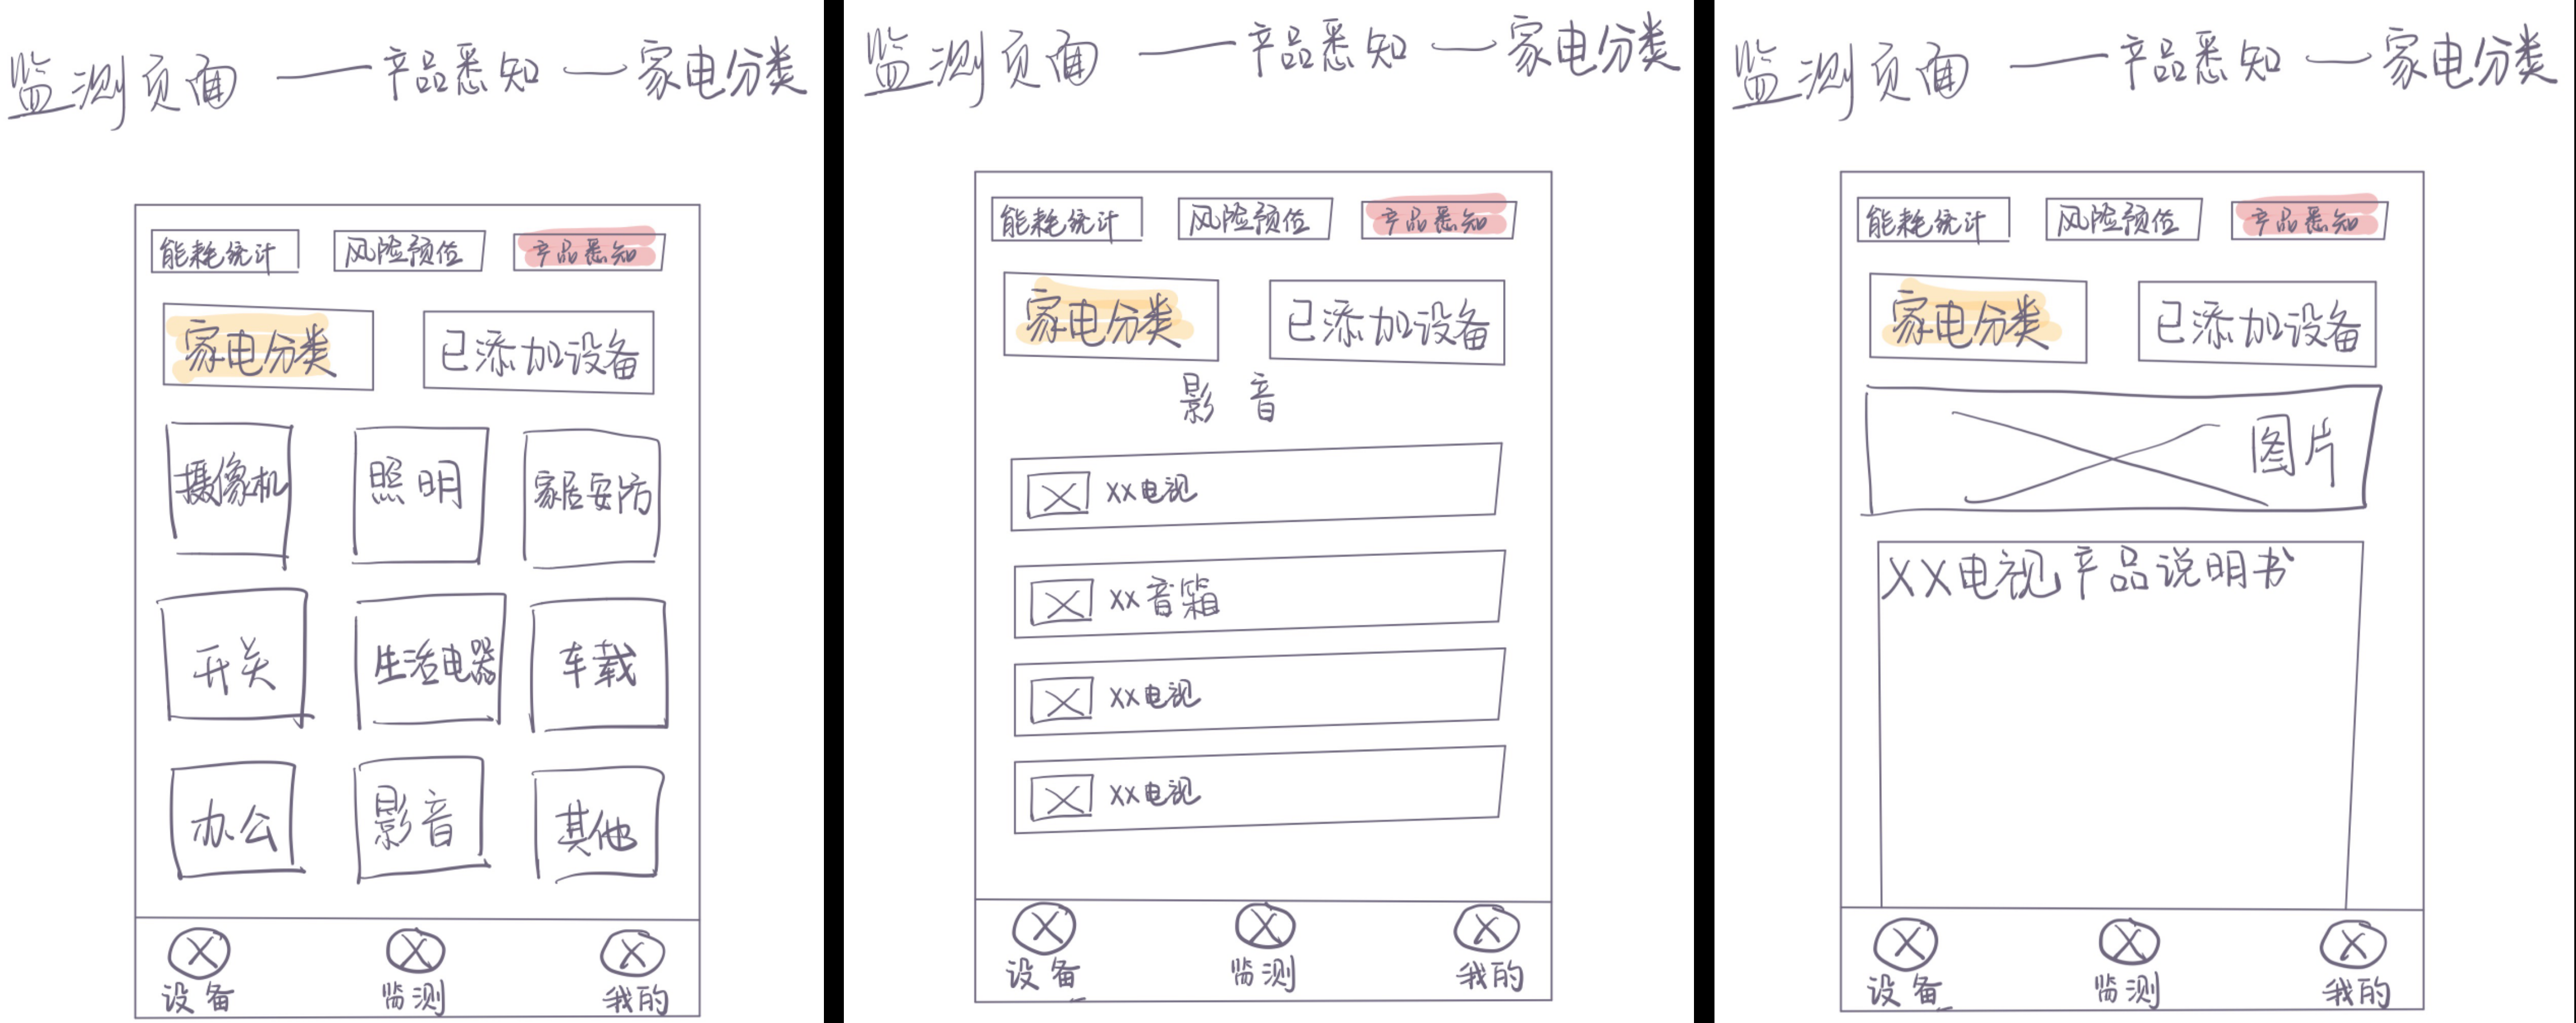 监测页面 —— 产品悉知 — 家电分类
能耗统计 风险预位 产品悉知
家电分类 已添加设备
摄像机 照明 家居安防
开关 生活电器 车载
办公 影音 其他
设备 监测 我的
监测页面 —— 产品悉知 — 家电分类
能耗统计 风险预位 产品悉知
家电分类 已添加设备
影音
xx电视
xx音箱
xx电视
xx电视
设备 监测 我的
监测页面 —— 产品悉知 — 家电分类
能耗统计 风险预位 产品悉知
家电分类 已添加设备
图片
XX电视产品说明书
设备 监测 我的